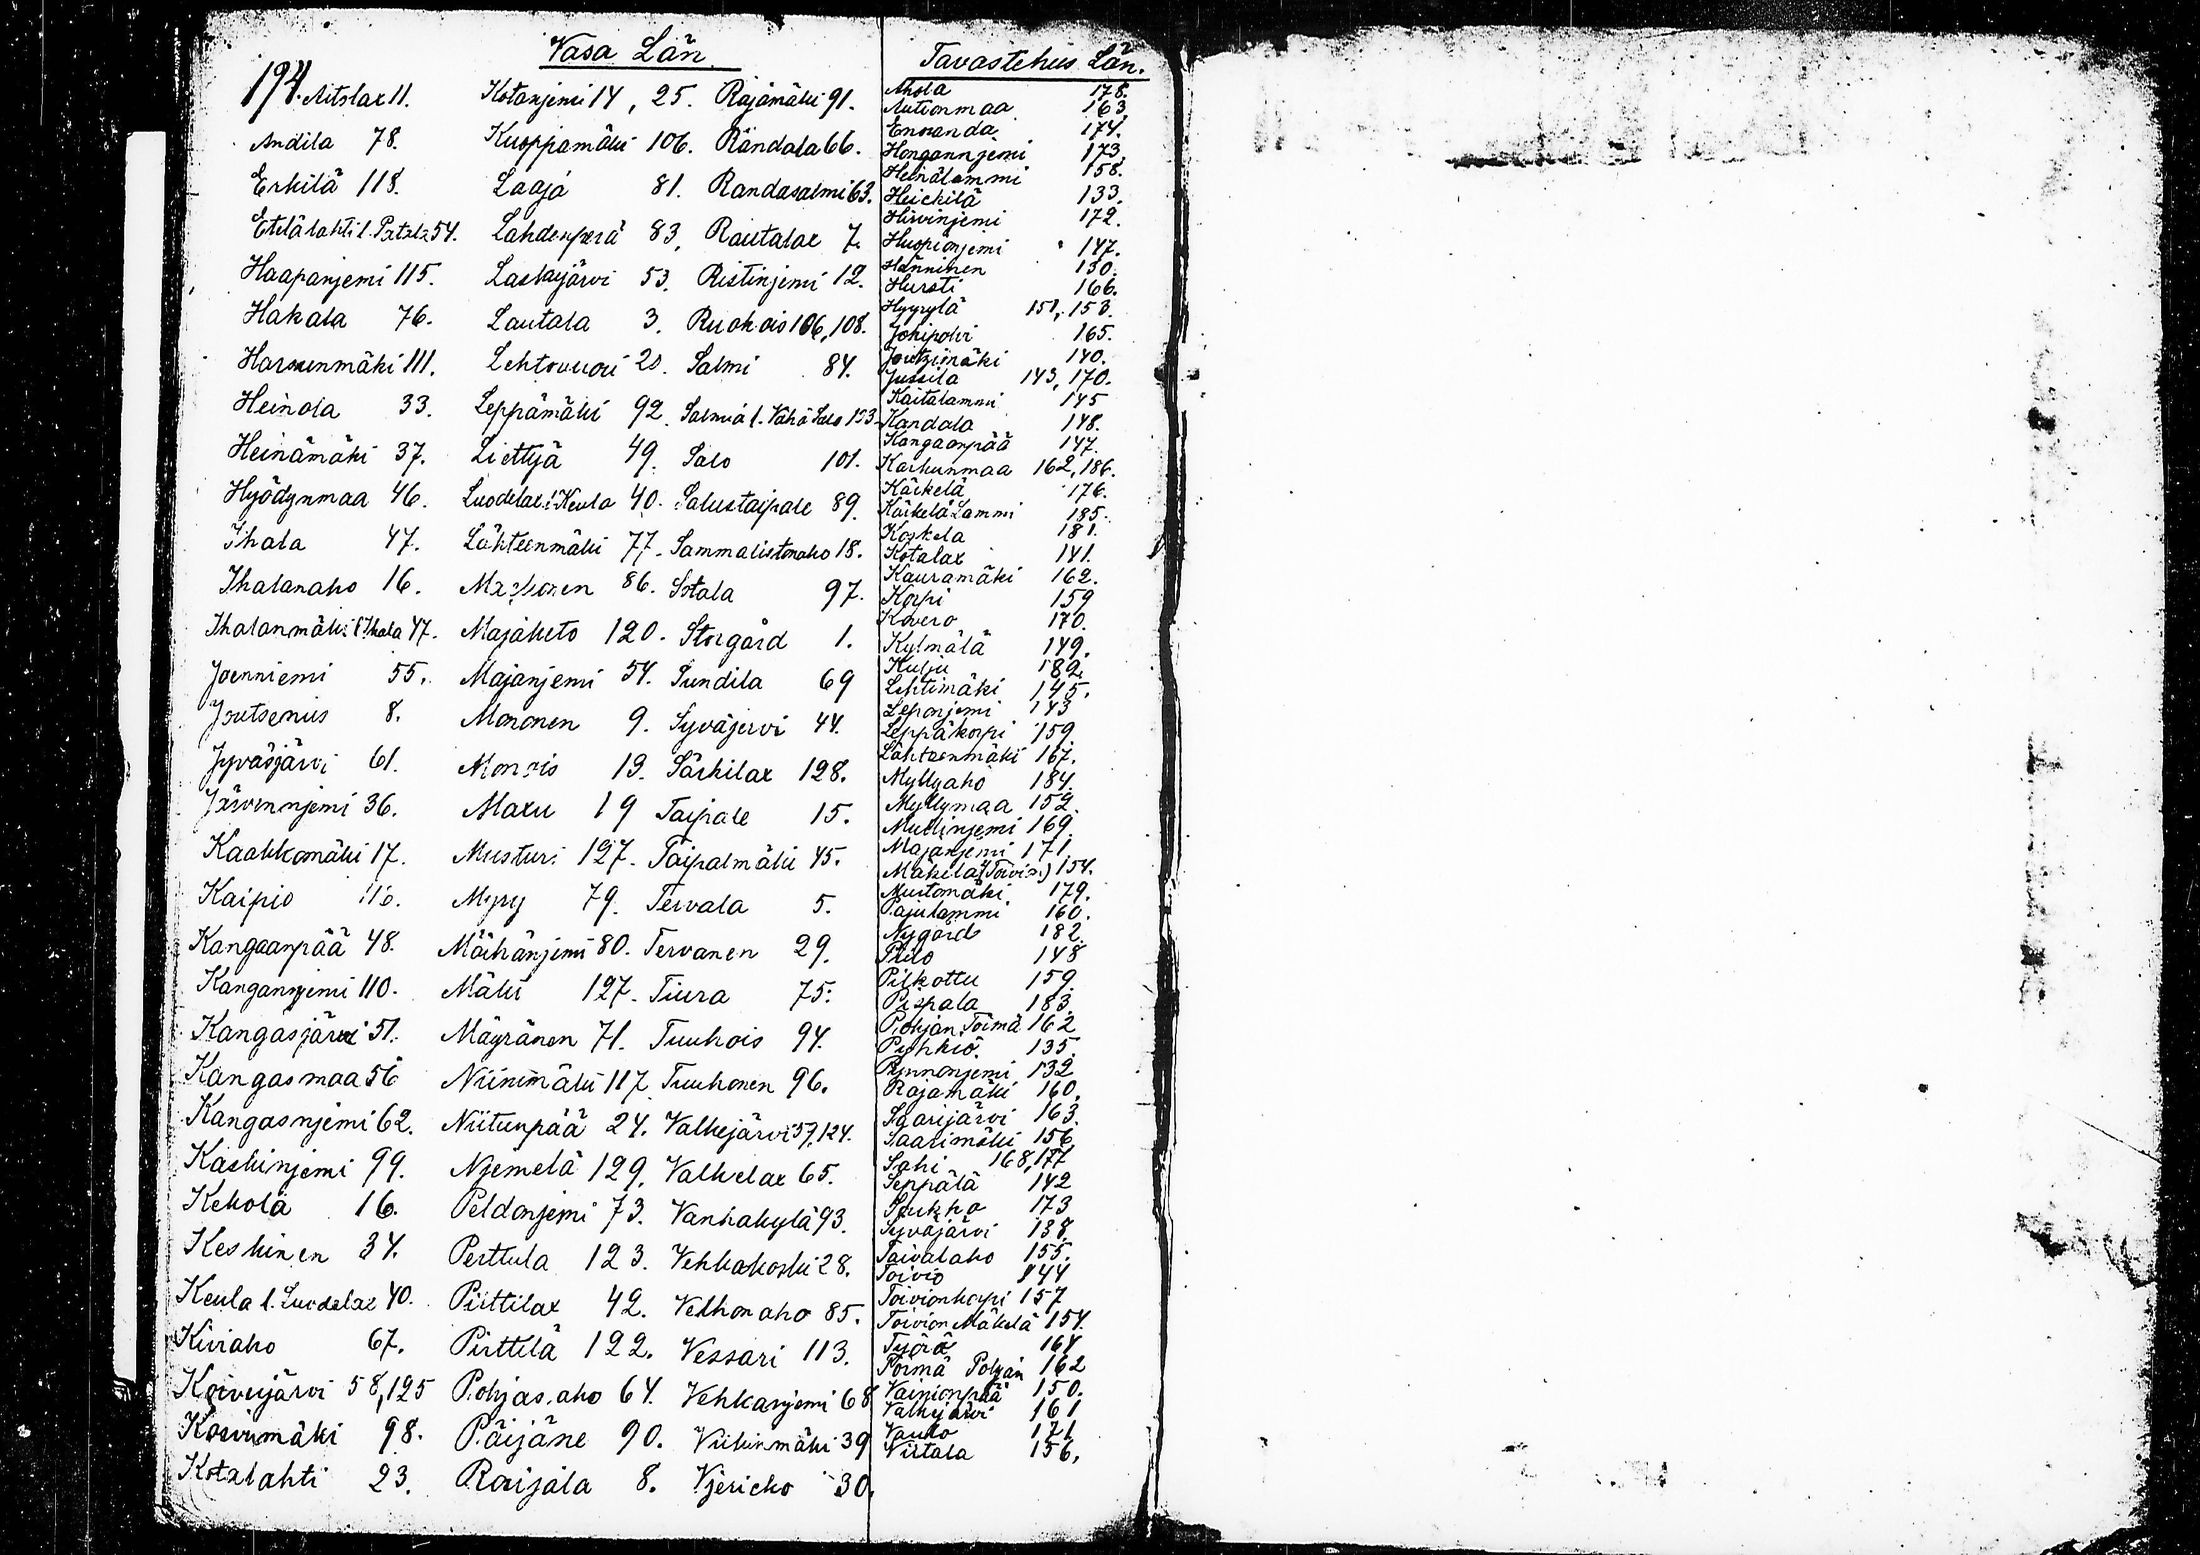 194.
Vasa Län.
Aitolax 11.
Andila 78.
Erkilä 118.
Etelälahti l. Patala 54.
Haapanjemi 115.
Hakala 76.
Harsunmäki 111.
Heinola 33.
Heinämäki 37.
Hyödynmaa 46.
Ihala 47.
Ihalanaho 16.
Ihalanmäki l. Ihala 47.
Joenniemi 55.
Joutsenius 8.
Jyväsjärvi 61.
Järvennjemi 36.
Kaakkomäki 17.
Kaipio
Kangaanpää 48.
Kangannjemi 110.
Kangasjärvi 51.
Kangasmaa 56
Kangasnjemi 62.
Kaskinjemi 99.
Kekola 16.
Keskinen 34.
Keula l. Luodelax 40.
Kiviaho 67.
Koivujärvi 58, 125
Koivumäki 98.
Kotalahti 23.
Kotanjemi 14, 25.
Kuoppamäki 106.
Laaja 81.
Lahdenperä 83,
Laskujärvi 53.
Lautala 3.
Lehtovuori 20.
Leppämäki 92.
Liettyä 49.
Luodelax l. Keula 40.
Lähteenmäki 77.
86.
Majaketo 120.
Majanjemi 54.
Mononen 9.
Monois 13.
Maxu 19
Musturi 127.
Myry 79.
Mäihänjemi 80.
Mäki 127.
Mäyränen 71.
Niinimäki 117.
Niitunpää 24.
Njemelä 129.
Peldonjemi 73.
Perttula 123.
Piittilax 42.
Pirttilä 122.
Pohjas.aho 64.
Päijäne 90.
Roiijala 8.
Rajamäki 91.
Rändala 66.
Randasalmi 63.
Rautalax 7.
Ristinjemi 12.
Ruokois 106, 108.
Salmi 84.
Salmia l. Vähä Salo 103
Salo 101.
Salustaipale 89.
Sammalistonaho 18.
Sotala 97.
Storgård 1.
Sundila 69
Syväjervi 44.
Särkilax 128.
Taipale 15.
Taipalmäki 45.
Tervala 5.
Tervanen 29.
Tiura 75.
Tuuhois 94.
Tuuhonen 96.
Valkejärvi 57, 124.
Valkelax 65.
Vanhakylä 93.
Vehkakoski 28.
Velhonaho 85.
Vessari 113.
Vehkanjemi 68
Viikinmäki 39
Vjericko 30.
Tavastehus Län.
Ahola 178.
Autionmaa 163.
Enoranda 174.
Hongannjemi 173.
Heinälammi 158.
Heickilä 133.
Hirvinjemi 172.
Huopionjemi 147.
Hänninen 130.
Hursti 166.
Hyyrylä 151, 153.
Jokipolvi 165.
Joutzimäki 140.
Jussila 143, 170.
Kaitalammi 145
Kandola 148.
Kangaanpää 147.
Karhunmaa 162, 186.
Kärkelä 176.
Kärkelä Lammi 185.
Koskela 181.
Kotalax 141.
Kauramäki 162.
Korpi 159
Kovero 170.
Kylmälä 149.
Kulju 182.
Lehtimäki 145.
Leponjemi 143
Leppäkorpi 159.
Lähteenmäki 167.
Myllyaho 184.
Myllymaa 152.
Mullinjemi 169.
Majanjemi 171
Mäkelä (Toivion) 154.
Mustomäki 179.
Pajulammi 160.
Nygård 182.
148
Pilkottu 159.
Pispala 183.
Pohjan Toimä 162
Pyhkiö. 135.
Pynnonjemi 132
Rajamäki 160.
Saarijärvi 163.
Saarimäki 156
Sahi 168, 177
Seppälä 142
Saukko 173
Syväjärvi 138.
Taivalaho 155.
Toivio 144
Toivionkorpi 157
Toivion Mäkelä 154.
Työrä 164
Toimä Pohjan 162
Vainionpää 150.
Valkejärvi 161
Vauko 171
Viitala 156.